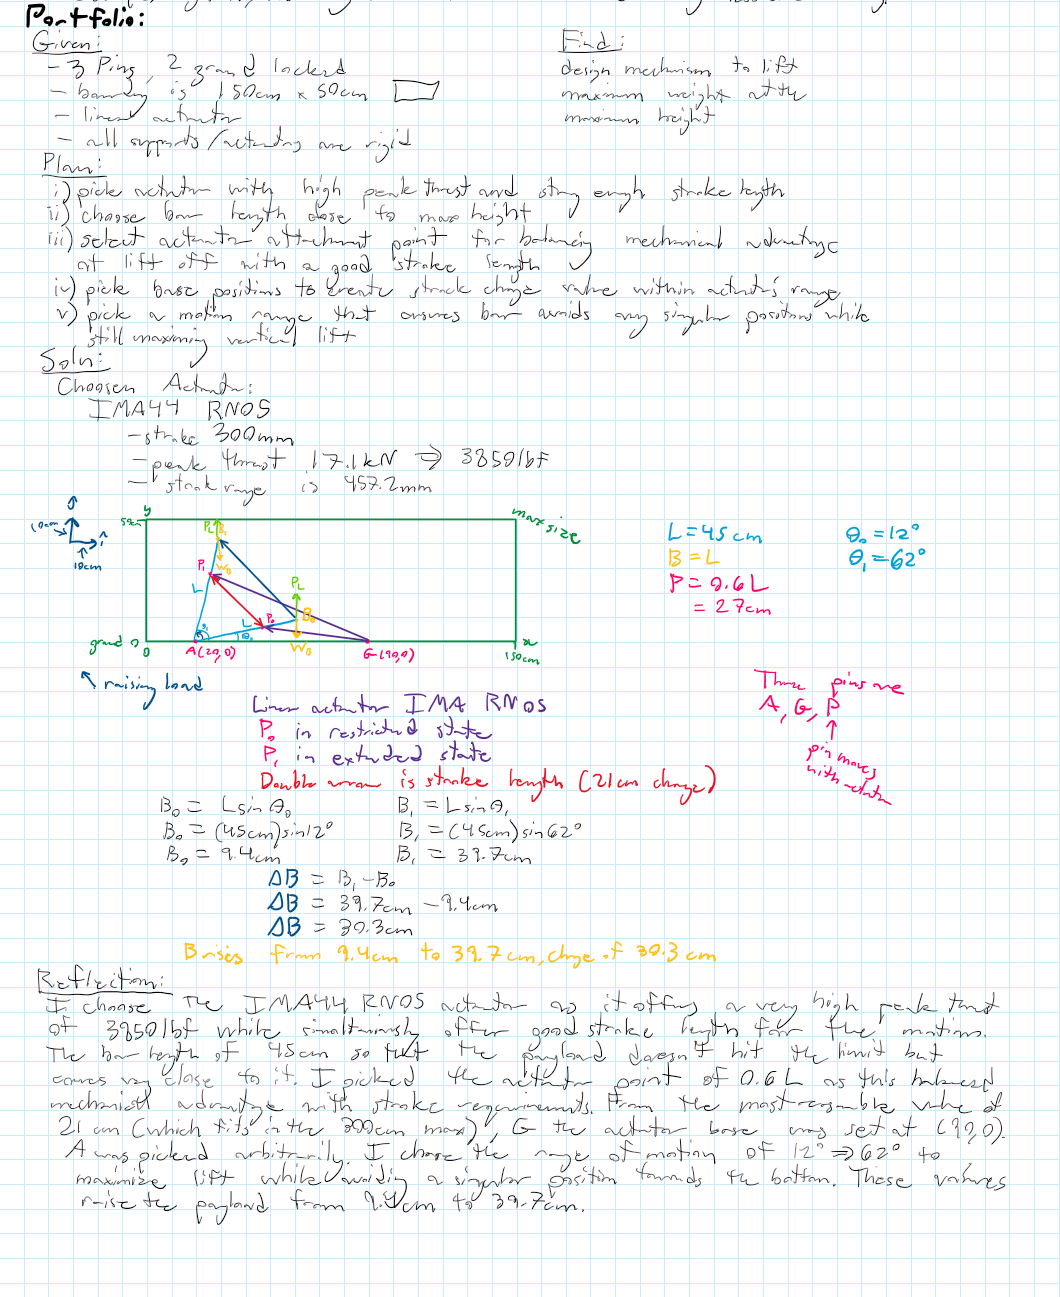 Portfolio:
Given:
- 3 Pins, 2 ground locked
- boundary is 150cm x 50cm
- linear actuator
- all supports/actuating are rigid
Find:
design mechanism to lift
maximum weight at the
maximum height
Plan:
i) pick actuator with high peak thrust and strong enough stroke length
ii) choose bar length close to max height
iii) select actuator attachment point for balancing mechanical advantage
at lift off with a good stroke length
iv) pick base positions to create stroke change value within actuator's range
v) pick a motion range that ensures bar avoids any singular positions while
still maximizing vertical lift
Soln:
Choosen Actuator:
IMA44 RN05
- stroke 300mm
- peak thrust 17.1kN ⇒ 3850lbf
- stroke range is 457.2mm
10cm
10cm
y
50cm
max size
ground 0
0
A(20,0)
G(90,0)
x
150cm
P₁
P₀
PL
PL
B₀
W₀
W₀
L
L
θ₀
raising load
L = 45cm
B = L
P = 0.6L
= 27cm
θ₀ = 12°
θ₁ = 62°
Three pins are
A, G, P
pin moves
with actuator
Linear actuator IMA RN05
P₀ in restricted state
P₁ in extended state
Double arrow is stroke length (21cm change)
B₀ = Lsinθ₀
B₀ = (45cm)sin12°
B₀ = 9.4cm
B₁ = Lsinθ₁
B₁ = (45cm)sin62°
B₁ = 39.7cm
ΔB = B₁ - B₀
ΔB = 39.7cm - 9.4cm
ΔB = 30.3cm
B rises from 9.4cm to 39.7cm, change of 30.3cm
Reflection:
I choose the IMA44 RN05 actuator as it offers a very high peak thrust
of 3850lbf while simultaniously offer good stroke length for the motions.
The bar length of 45cm so that the payload doesn't hit the limit but
comes very close to it. I picked the actuator point of 0.6L as this balanced
mechanical advantage with stroke requirements. From the most reasonable value of
21cm (which fits in the 300cm max), G the actuator base was set at (90,0).
A was picked arbitrarily. I chose the range of motion of 12° ⇒ 62° to
maximize lift while avoiding a singular position towards the bottom. These values
raise the payload from 9.4cm to 39.7cm.